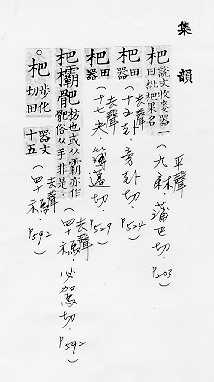 集韻
杷 說文收麥器一曰枇杷果名 (平聲 九麻 蒲巴切. P203)
杷 田器 (去聲 十五卦 旁卦切. P524)
杷 田器 (去聲 十七夬 簿邁切. P529)
杷欛 枋也或从霸亦作 俗从手非是 (去聲 四十禡 必駕切. P592)
杷 步化切田器文十五 (去聲 四十禡 P592)